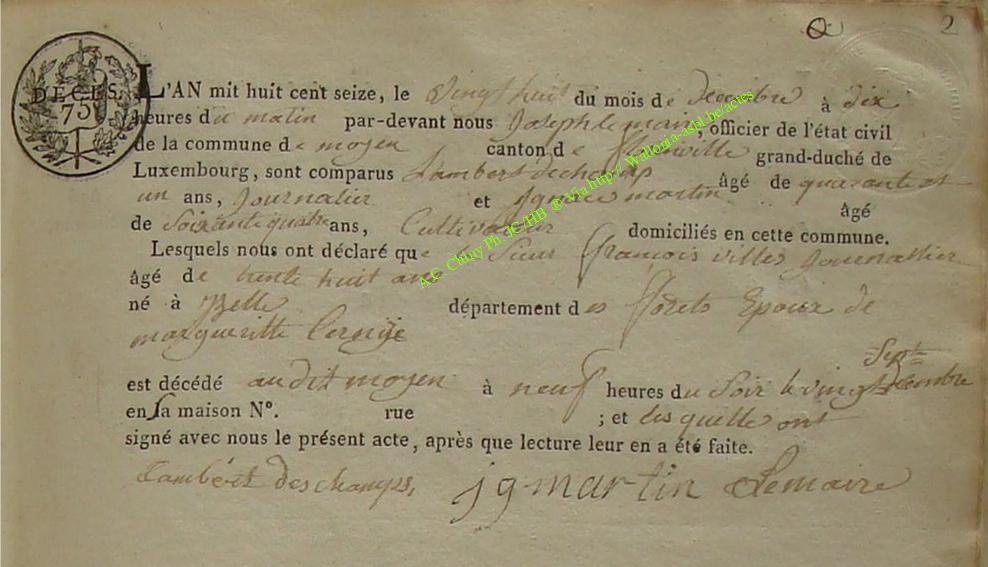 2
DÉCÈS.
75
L'AN mit huit cent seize, le vingt huit du mois de decembre à dix
heures du matin par-devant nous Joseph lemaire, officier de l'état civil
de la commune de moyen canton de florenville grand-duché de
Luxembourg, sont comparus Lambert dechamp âgé de quarante et
un ans, Journalier et Ignace martin âgé
de Soixante quatre ans, Cultivateur domiciliés en cette commune.
Lesquels nous ont déclaré que le Sieur françois villes Journallier
âgé de trente huit ans
né à Izelle département des forets Epoux de
margueritte
est décédé au dit moyen à neuf heures du Soir le vingt Sept decembre
en sa maison N°. rue ; et les quelle ont
signé avec nous le présent acte, après que lecture leur en a été faite.
Lambért deschamps, jg martin Lemaire
A.C. Chiny Ph JC/HB @ Via http// Wallonia-asbl.be/actes